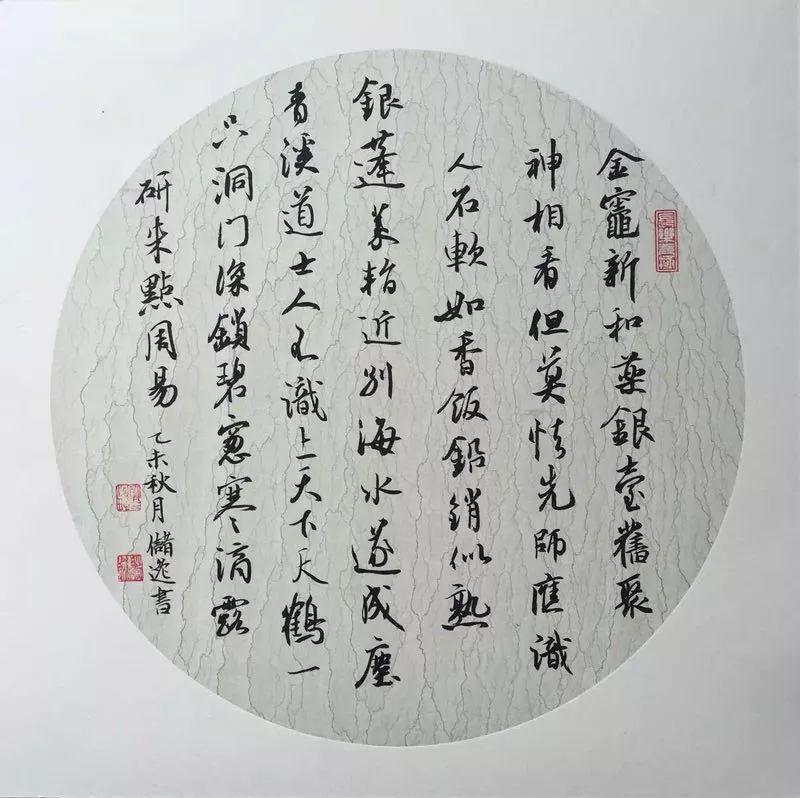 金竈新和藥銀臺舊聚
神相看但莫怯先師應識
人石軟如香飯鉛銷似熟
銀蓬萊暫近別海水遂成塵
青溪道士人不識上天下天鶴一
只洞门深鎖碧窓寒滴露
研朱點周易
乙未秋月儲逸書